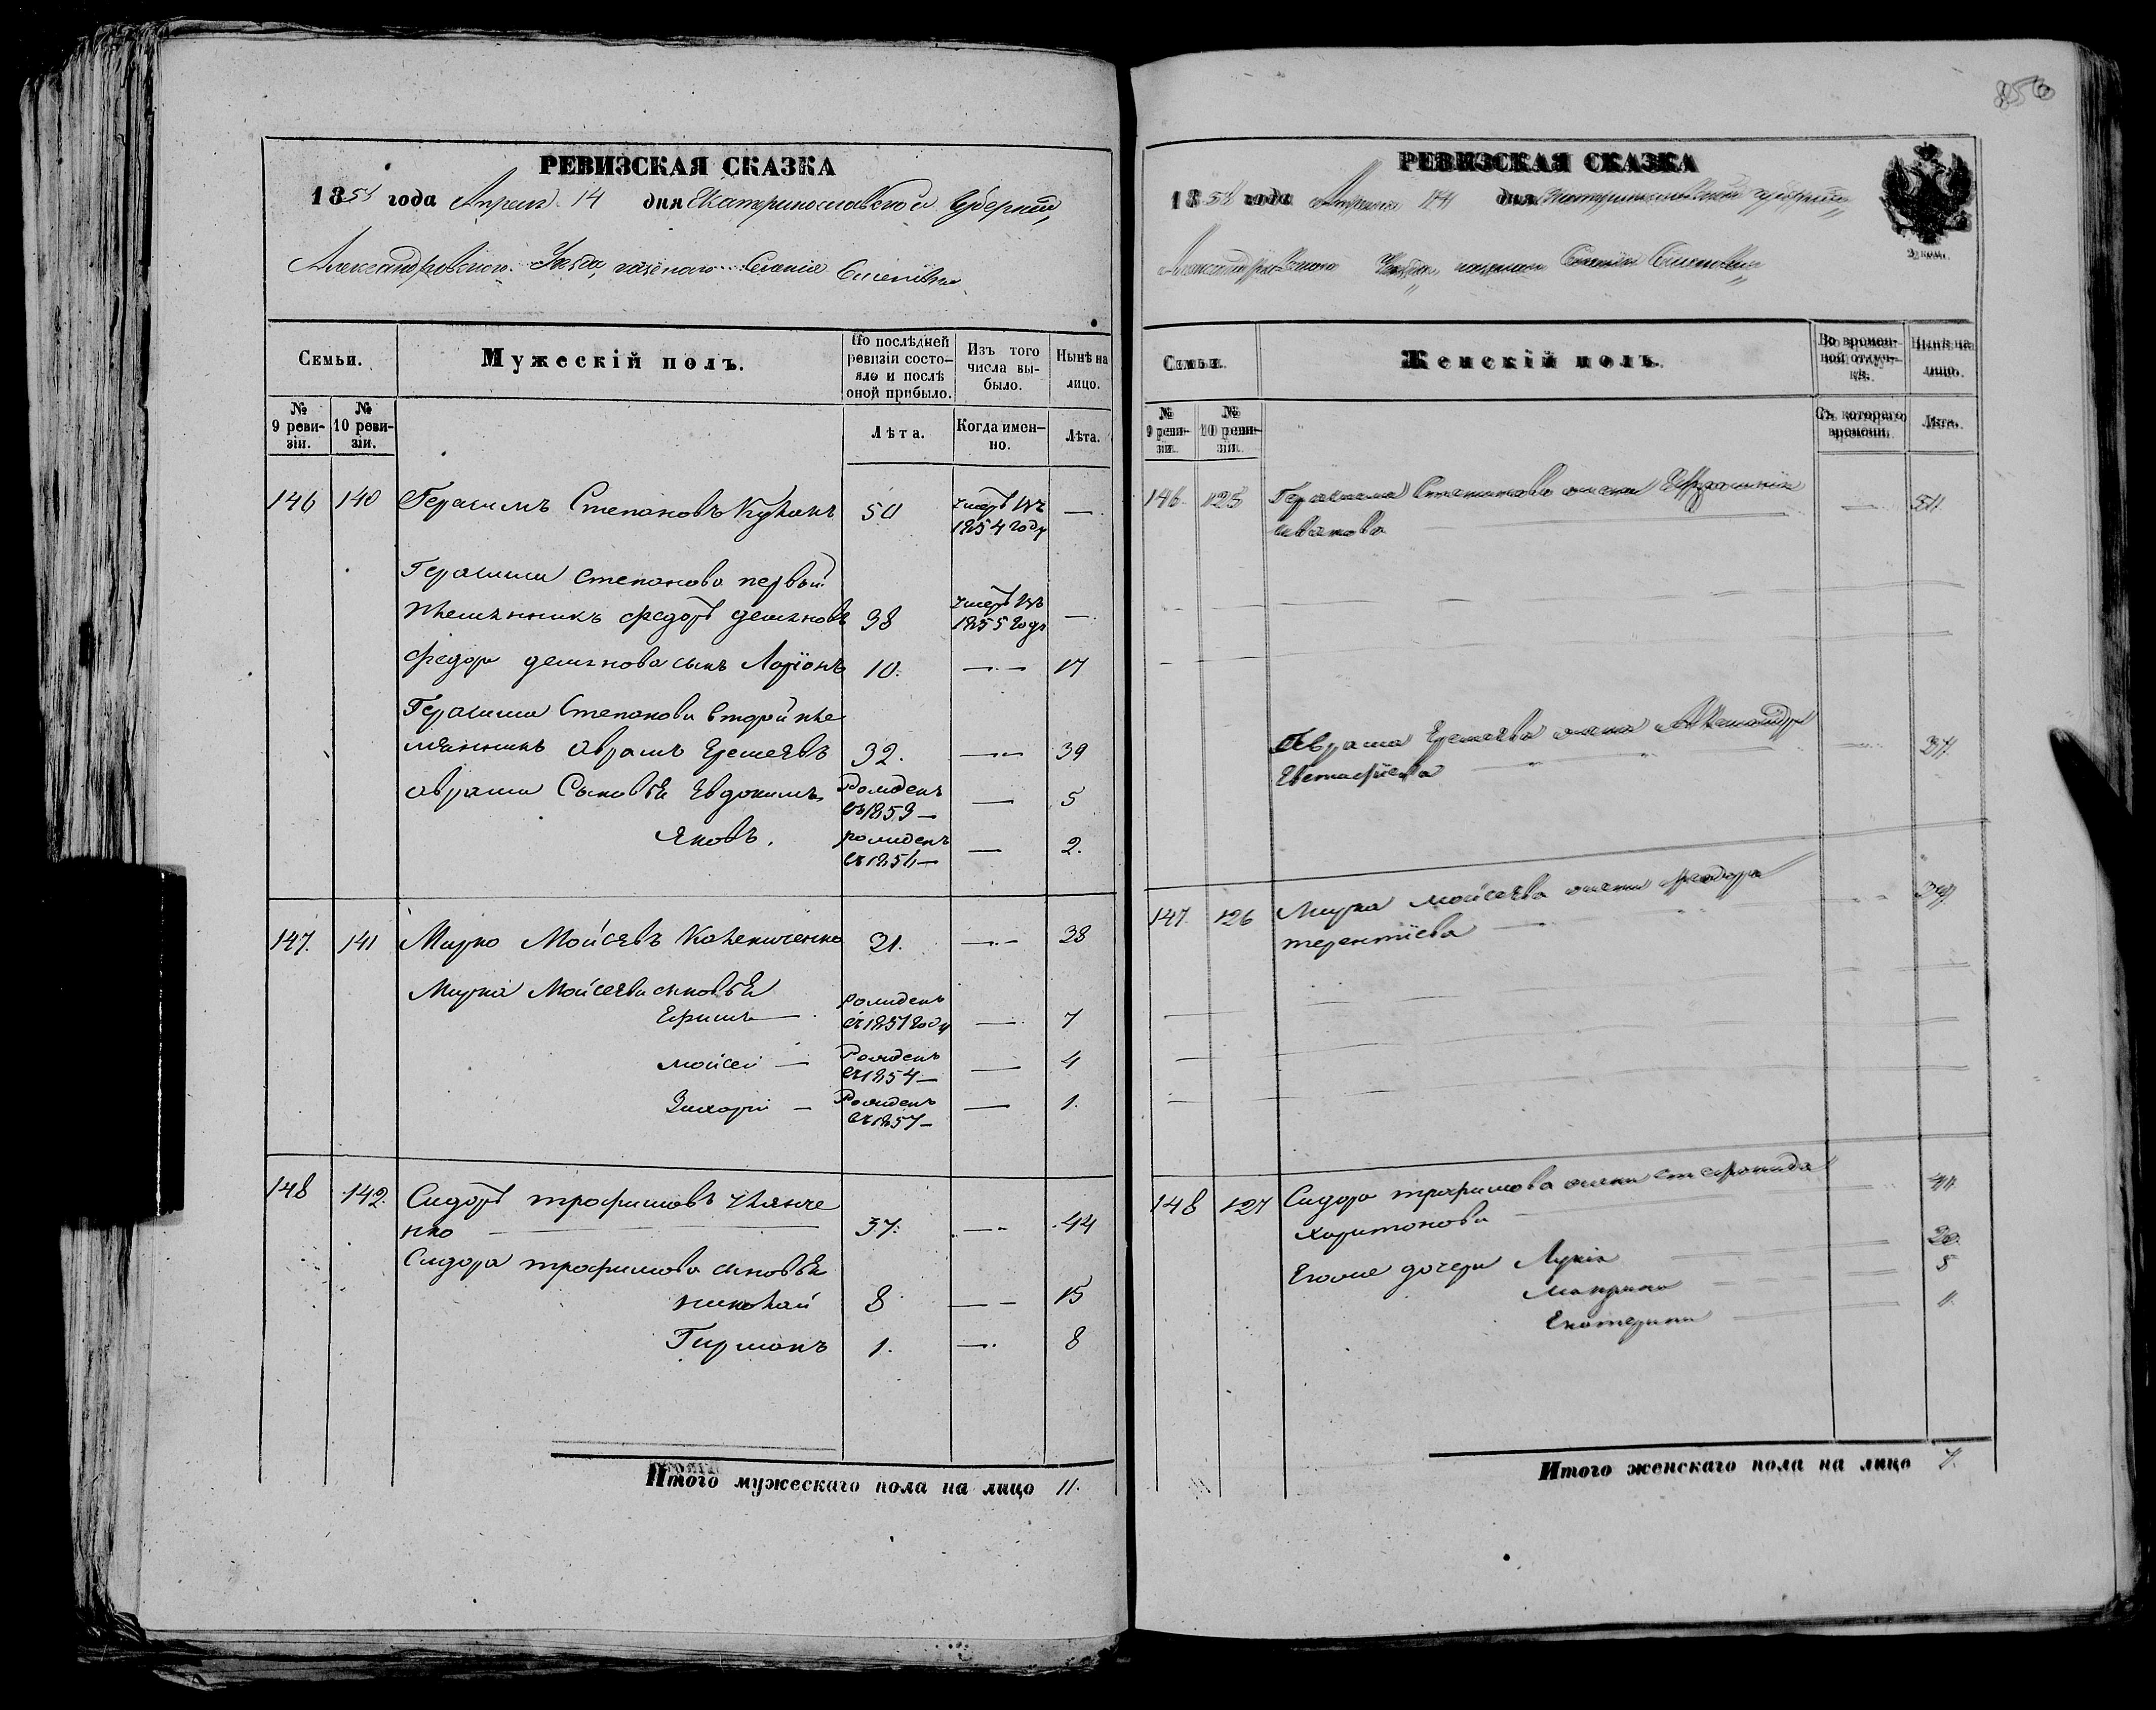 РЕВИЗСКАЯ СКАЗКА
1858 года Апреля 14 дня Екатеринославской Губернии,
Александровского Уезда, казенаго Селенія
Семьи.
Мужескій полъ.
По послѣдней ревизіи состо-
яло и послѣ оной прибыло.
Изъ того числа вы-
было.
Нынѣ на лицо.
№ 9 реви-
зіи.
№ 10 реви-
зіи.
Лѣта.
Когда имен-
но.
Лѣта.
146 140 Герасимъ Степановъ 50 умеръ въ —
1854 году
Герасима Степанова первый
племянникъ Федоръ Демяновъ 38 умеръ въ —
1855 году
Федора Демянова сынъ Ларіонъ 10. — 17
Герасима Степанова второй пле
мянникъ Аврамъ Еремѣевъ 32. — 39
Аврама Сыновья Евдокимъ Рожденъ — 5
въ 1853 —
Яковъ. рожденъ — 2.
въ 1856 —
147. 141 Мирко Мойсѣевъ Коленниченко 31. — 38
Мирка Мойсѣева сыновья
Ефимъ — рожденъ — 7
въ 1851 году
Мойсей — Рожденъ — 4
въ 1854 —
Захарій — Рожденъ — 1.
въ 1857 —
148 142. Сидоръ Трофимовъ Ульянче
нко — 37. — 44
Сидора Трофимова сыновья
Николай 8 — 15
Гирманъ 1. — 8
Итого мужескаго пола на лицо 11.
РЕВИЗСКАЯ СКАЗКА
1858 года Апреля 14 дня Екатеринославской Губерніи,
Александровского Уезда, казенаго Селенія
2 коп.
Семьи.
Женскій полъ.
Во времен-
ной отлуч-
кѣ.
Нынѣ на лицо.
№ 9 реви-
зіи.
№ 10 реви-
зіи.
Съ котораго времени.
Лѣта.
146. 125 Герасима Степанова жена Ефросинія — 51.
Иванова
Аврама Еремѣева жена Александра — 37.
Евстафіева
147. 126 Мирка Мойсѣева жена Федора — 39
Терентіева
148 127 Сидора Трофимова жена Стефанида — 41
Харитонова
Егоже дочери Лукія 20.
Макрина 5
Екатерина
Итого женскаго пола на лицо 7.